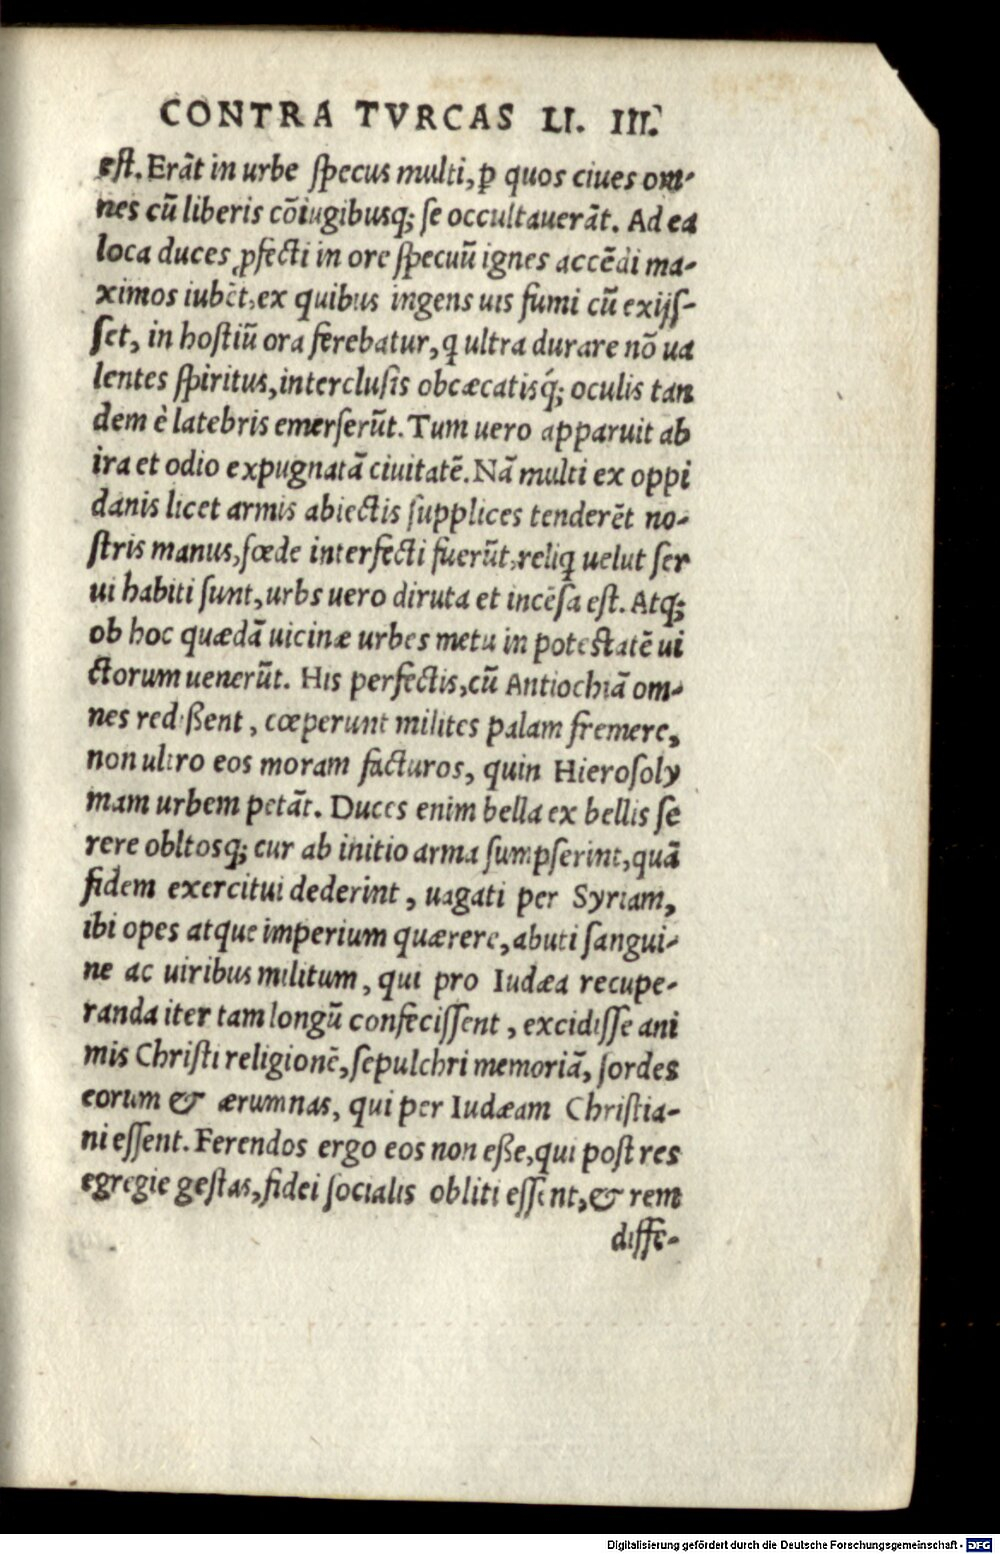 CONTRA TVRCAS LI. III.
est. Erãt in urbe specus multi, ꝑ quos ciues om-
nes cũ liberis cõiugibusq; se occultauerãt. Ad ea
loca duces ꝓfecti in ore specuũ ignes accẽdi ma-
ximos iubẽt, ex quibus ingens uis fumi cũ exijs-
set, in hostiũ ora ferebatur, q ultra durare nõ ua
lentes spiritus, interclusis obcæcatisq́; oculis tan
dem è latebris emerserũt. Tum uero apparuit ab
ira et odio expugnatã ciuitatẽ. Nã multi ex oppi
danis licet armis abiectis supplices tenderẽt no-
stris manus, fœde interfecti fuerũt, reliq uelut ser
ui habiti sunt, urbs uero diruta et incẽsa est. Atq;
ob hoc quædã uicinæ urbes metu in potestatẽ ui
ctorum uenerũt. His perfectis, cũ Antiochiã om-
nes redißent, cœperunt milites palam fremere,
non ultro eos moram facturos, quin Hierosoly
mam urbem petãt. Duces enim bella ex bellis se
rere obltosq; cur ab initio arma sumpserint, quã
fidem exercitui dederint, uagati per Syriam,
ibi opes atque imperium quærere, abuti sangui-
ne ac uiribus militum, qui pro Iudæa recupe-
randa iter tam longũ confecissent, excidisse ani
mis Christi religionẽ, sepulchri memoriã, sordes
eorum & ærumnas, qui per Iudæam Christia-
ni essent. Ferendos ergo eos non eße, qui post res
egregie gestas, fidei socialis obliti essent, & rem
diffe-
Digitalisierung gefördert durch die Deutsche Forschungsgemeinschaft - DFG